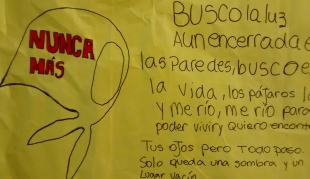 NUNCA
MÁS
BUSCO la luz
Aun encerrada e
las Paredes, busco e
la vida, los pájaros l
Y me río, me río para
poder vivir y quiero encont
Tus ojos pero Todo paso.
Solo queda una sombra y un
Lugar vacío